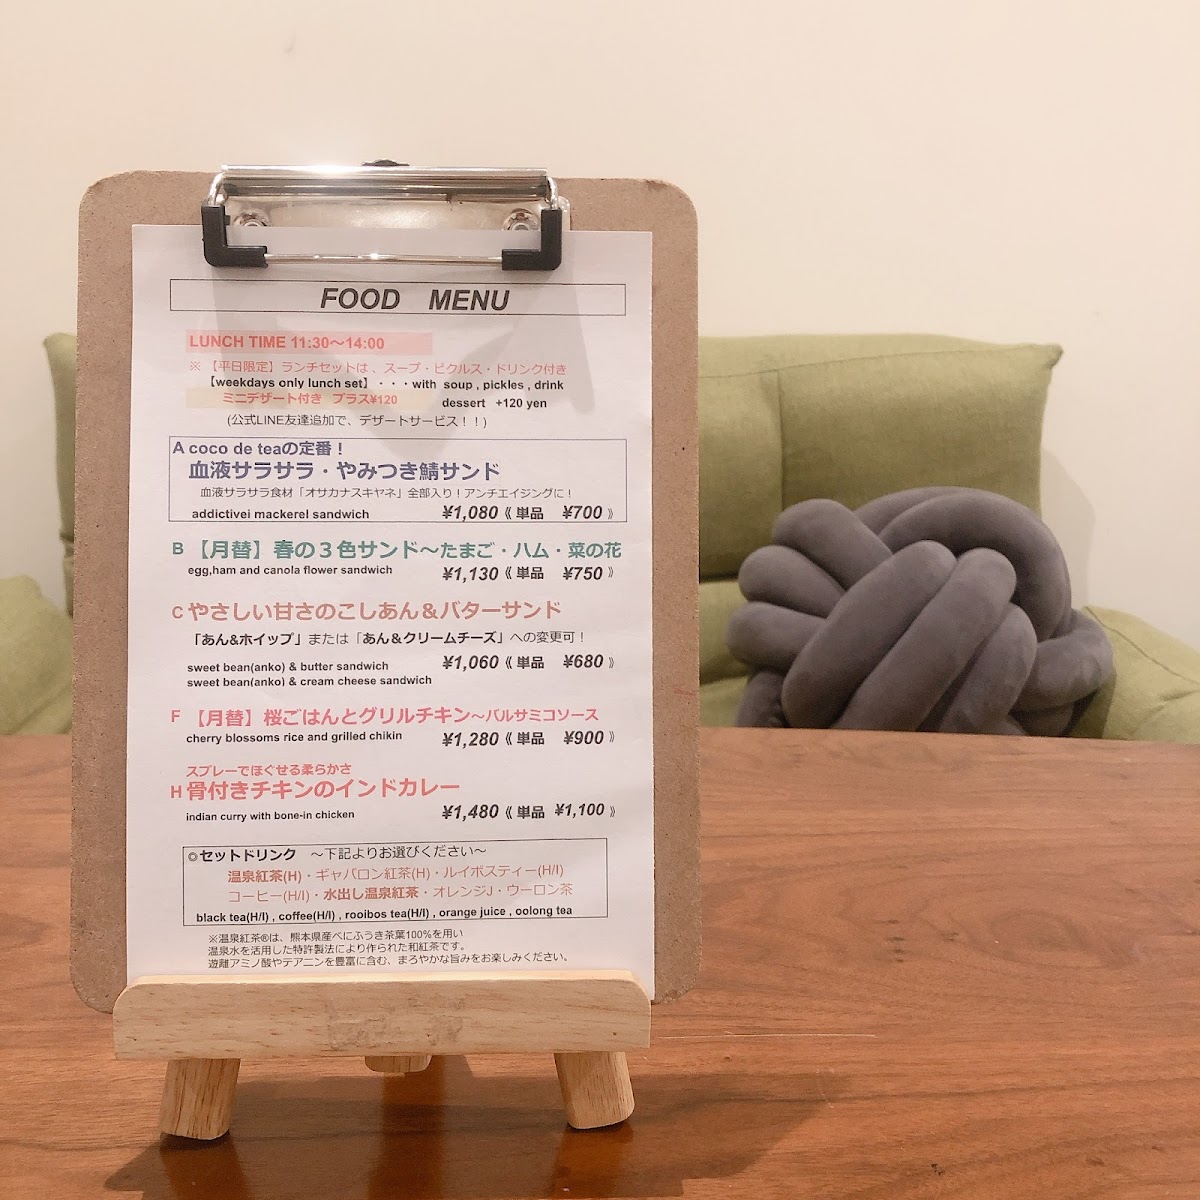 FOOD MENU
LUNCH TIME 11:30～14:00
※ 【平日限定】ランチセットは、スープ・ピクルス・ドリンク付き
【weekdays only lunch set】・・・with soup , pickles , drink
ミニデザート付き プラス¥120 dessert +120 yen
(公式LINE友達追加で、デザートサービス！！)
A coco de teaの定番！
血液サラサラ・やみつき鯖サンド
血液サラサラ食材「オサカナスキヤネ」全部入り！アンチエイジングに！
addictivei mackerel sandwich ¥1,080《 単品 ¥700 》
B 【月替】春の３色サンド～たまご・ハム・菜の花
egg,ham and canola flower sandwich ¥1,130《 単品 ¥750 》
C やさしい甘さのこしあん＆バターサンド
「あん&ホイップ」または「あん＆クリームチーズ」への変更可！
sweet bean(anko) & butter sandwich ¥1,060《 単品 ¥680 》
sweet bean(anko) & cream cheese sandwich
F 【月替】桜ごはんとグリルチキン～バルサミコソース
cherry blossoms rice and grilled chikin ¥1,280《 単品 ¥900 》
スプレーでほぐせる柔らかさ
H 骨付きチキンのインドカレー
indian curry with bone-in chicken ¥1,480《 単品 ¥1,100 》
◎セットドリンク ～下記よりお選びください～
温泉紅茶(H)・ギャバロン紅茶(H)・ルイボスティー(H/I)
コーヒー(H/I)・水出し温泉紅茶・オレンジJ・ウーロン茶
black tea(H/I) , coffee(H/I) , rooibos tea(H/I) , orange juice , oolong tea
※温泉紅茶®は、熊本県産べにふうき茶葉100%を用い
温泉水を活用した特許製法により作られた和紅茶です。
遊離アミノ酸やテアニンを豊富に含む、まろやかな旨みをお楽しみください。